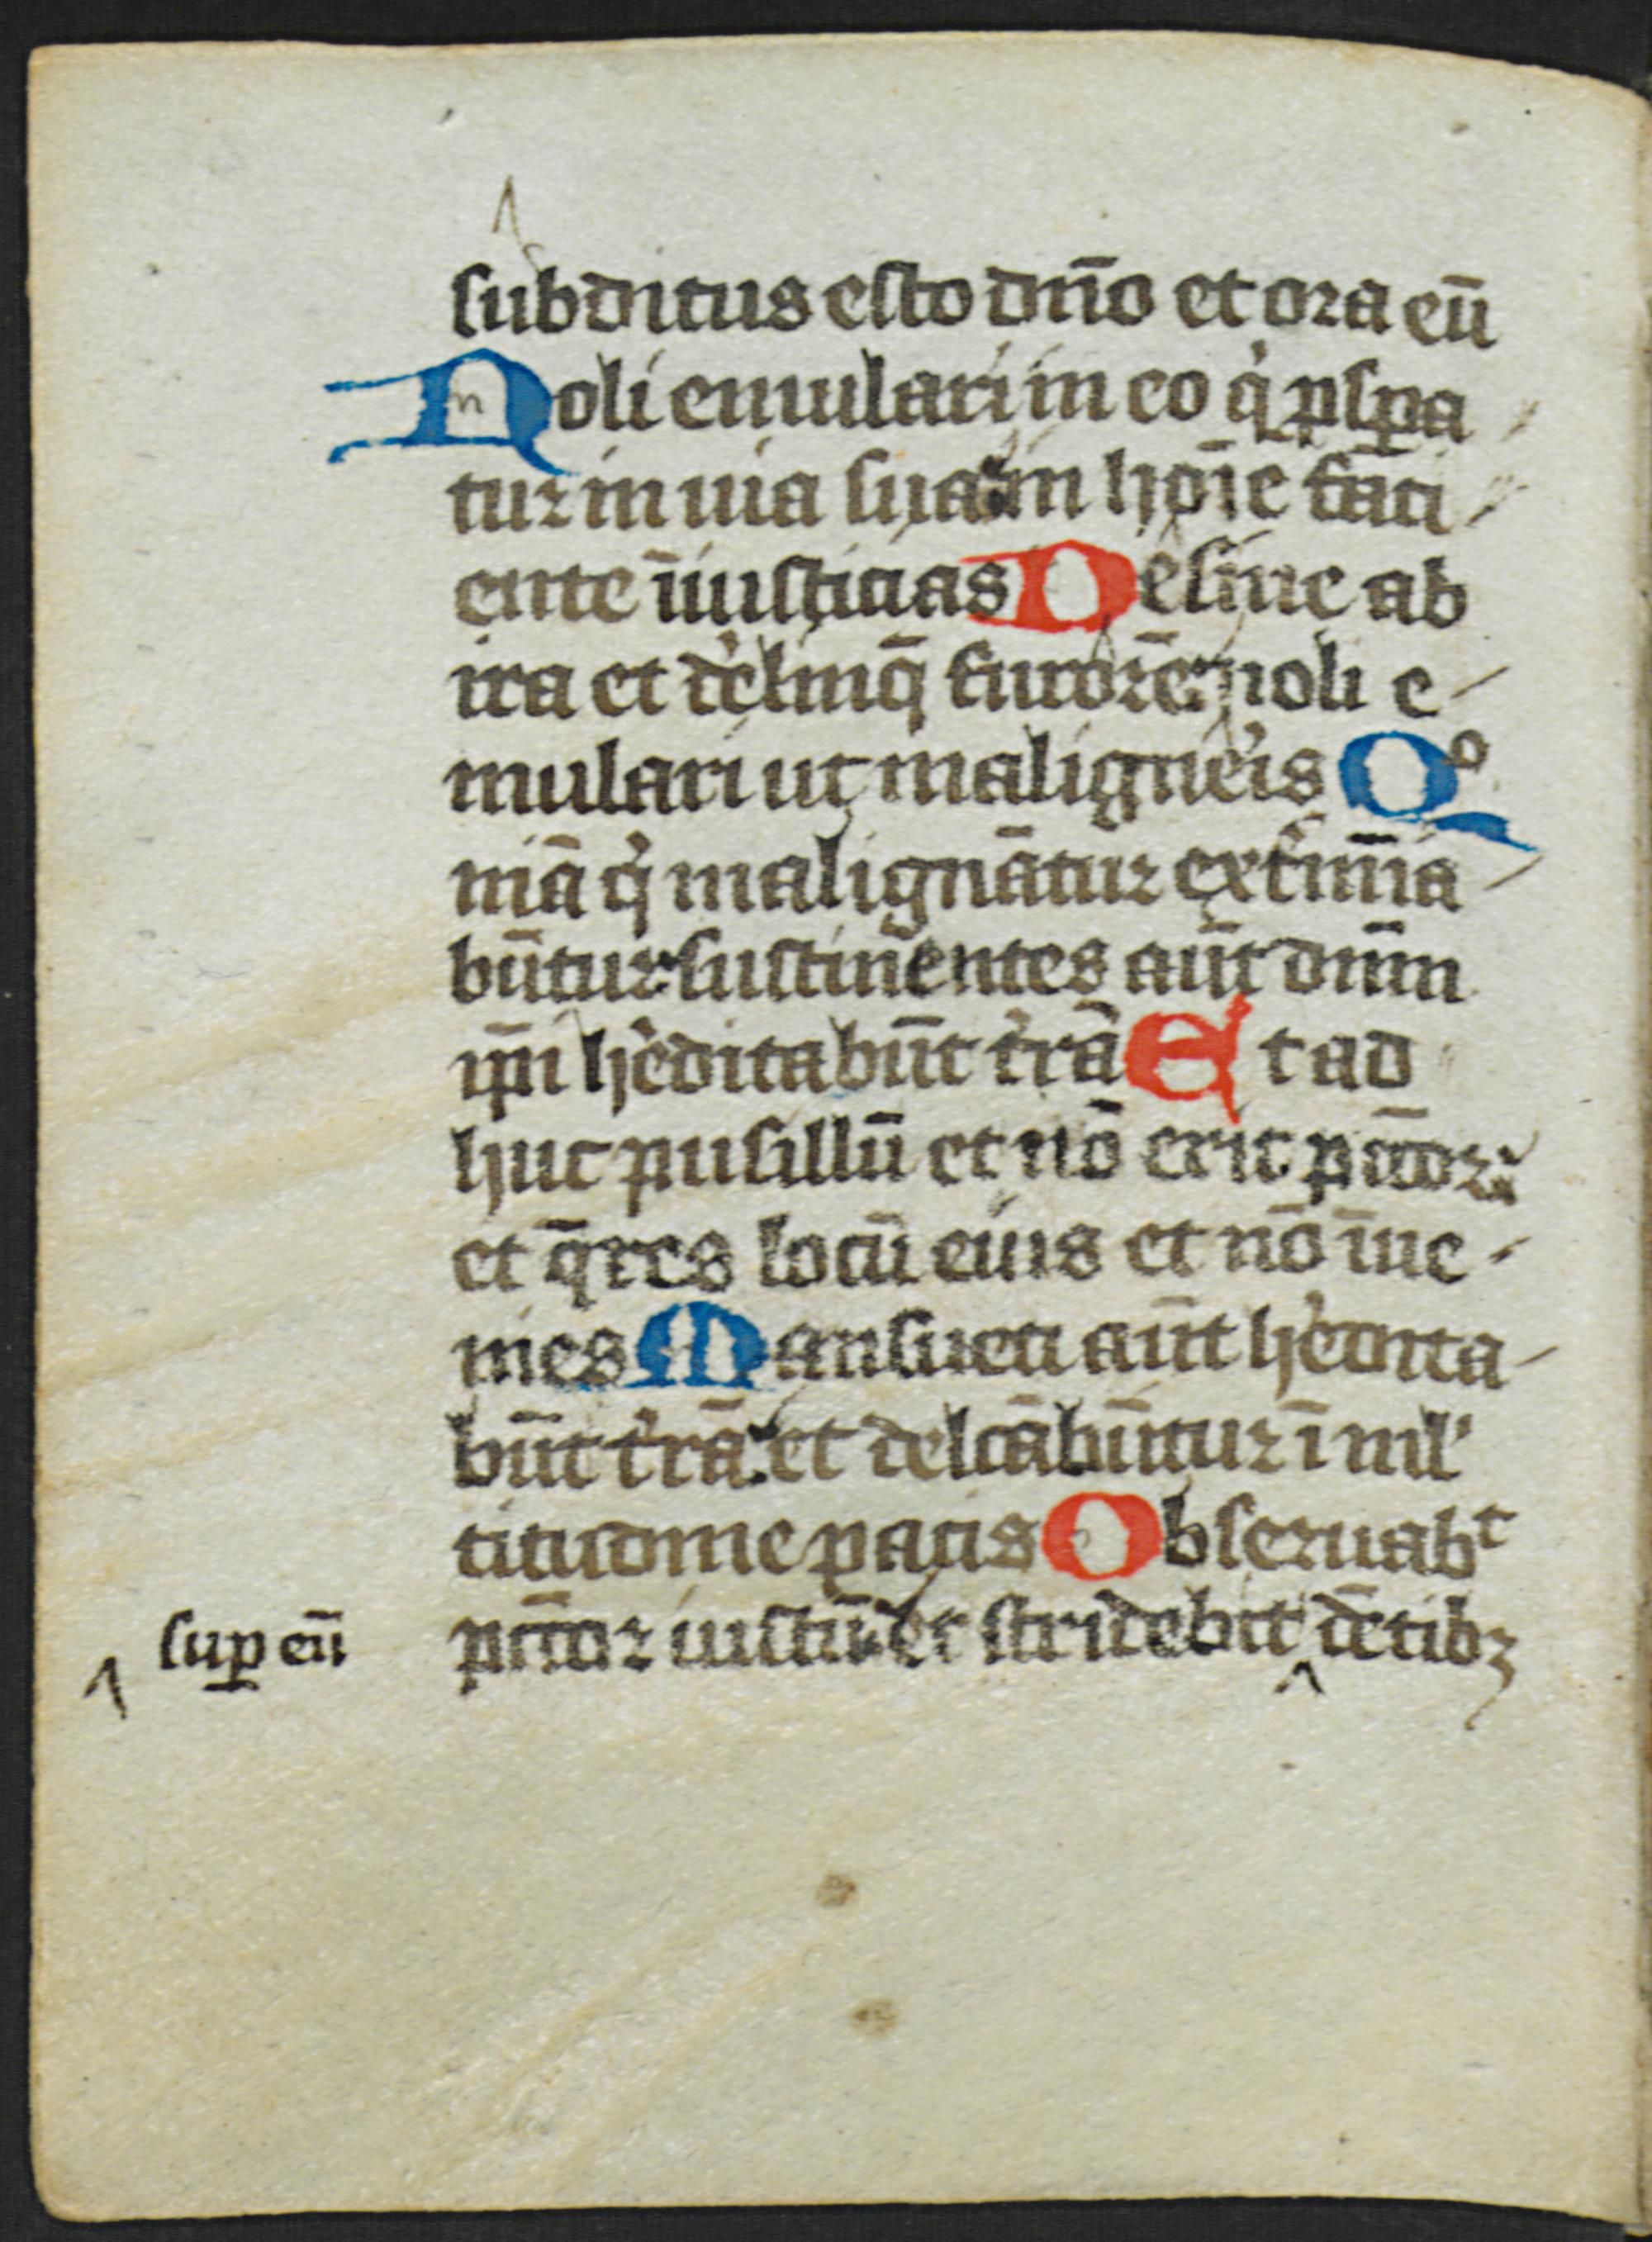 subditus esto dn̄o et ora eū
Noli emulari in eo qͥ ꝓspa
tur in uia sua in hoīe faci
ente īiusticias Desine ab
ira et delinq̄ furorē noli e
mulari ut maligneris Qͦ
niā qͥ malignātur extīmīa
būtur sustinentes aūt dn̄m
ip̄i he᷑ditabūt tr̄ā Et ad
huc pusillū et nō erit pc̄cor
et q̄res locū eius et nō īue
nies Mansueti aūt he᷑dita
būt tr̄ā et delcābūtur ī ml̓
titudine pacis Obseruabᵗ
pc̄cor iustū et stridebit dētibꝫ
suꝑ eū